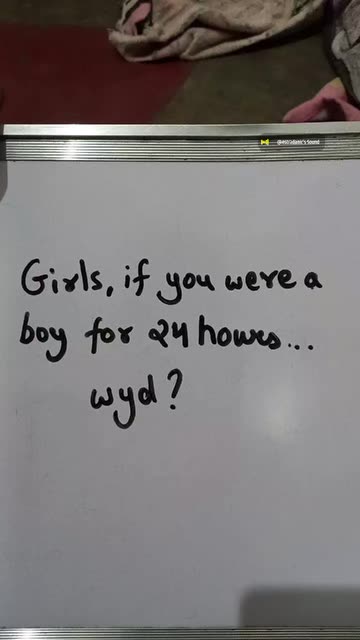 @estradaxk's Sound
Girls, if you were a
boy for 24 hours...
wyd?